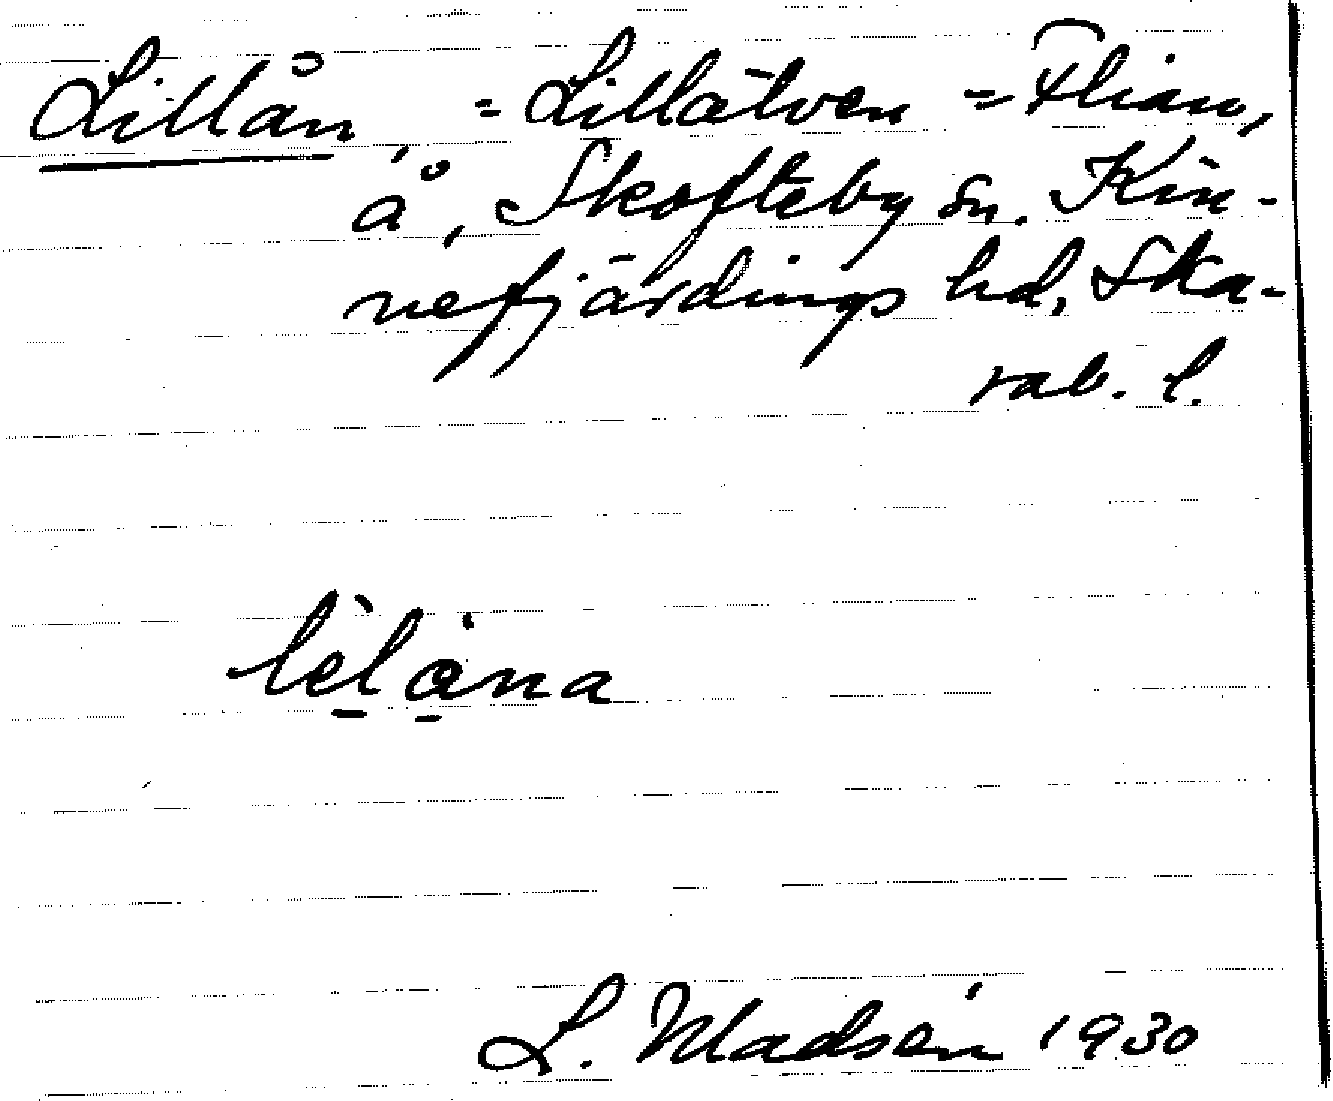 Lillån, = Lillälven = Flian,
å, Skofteby sn. Kin-
nefjärdings hd, Ska-
rab. l.
lèlåna
L. Madsén 1930